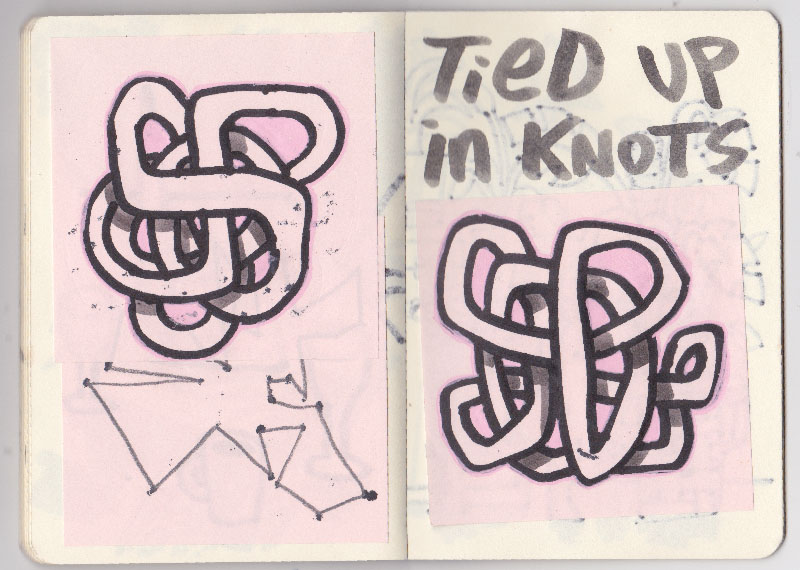 TiED UP
in KNOTS